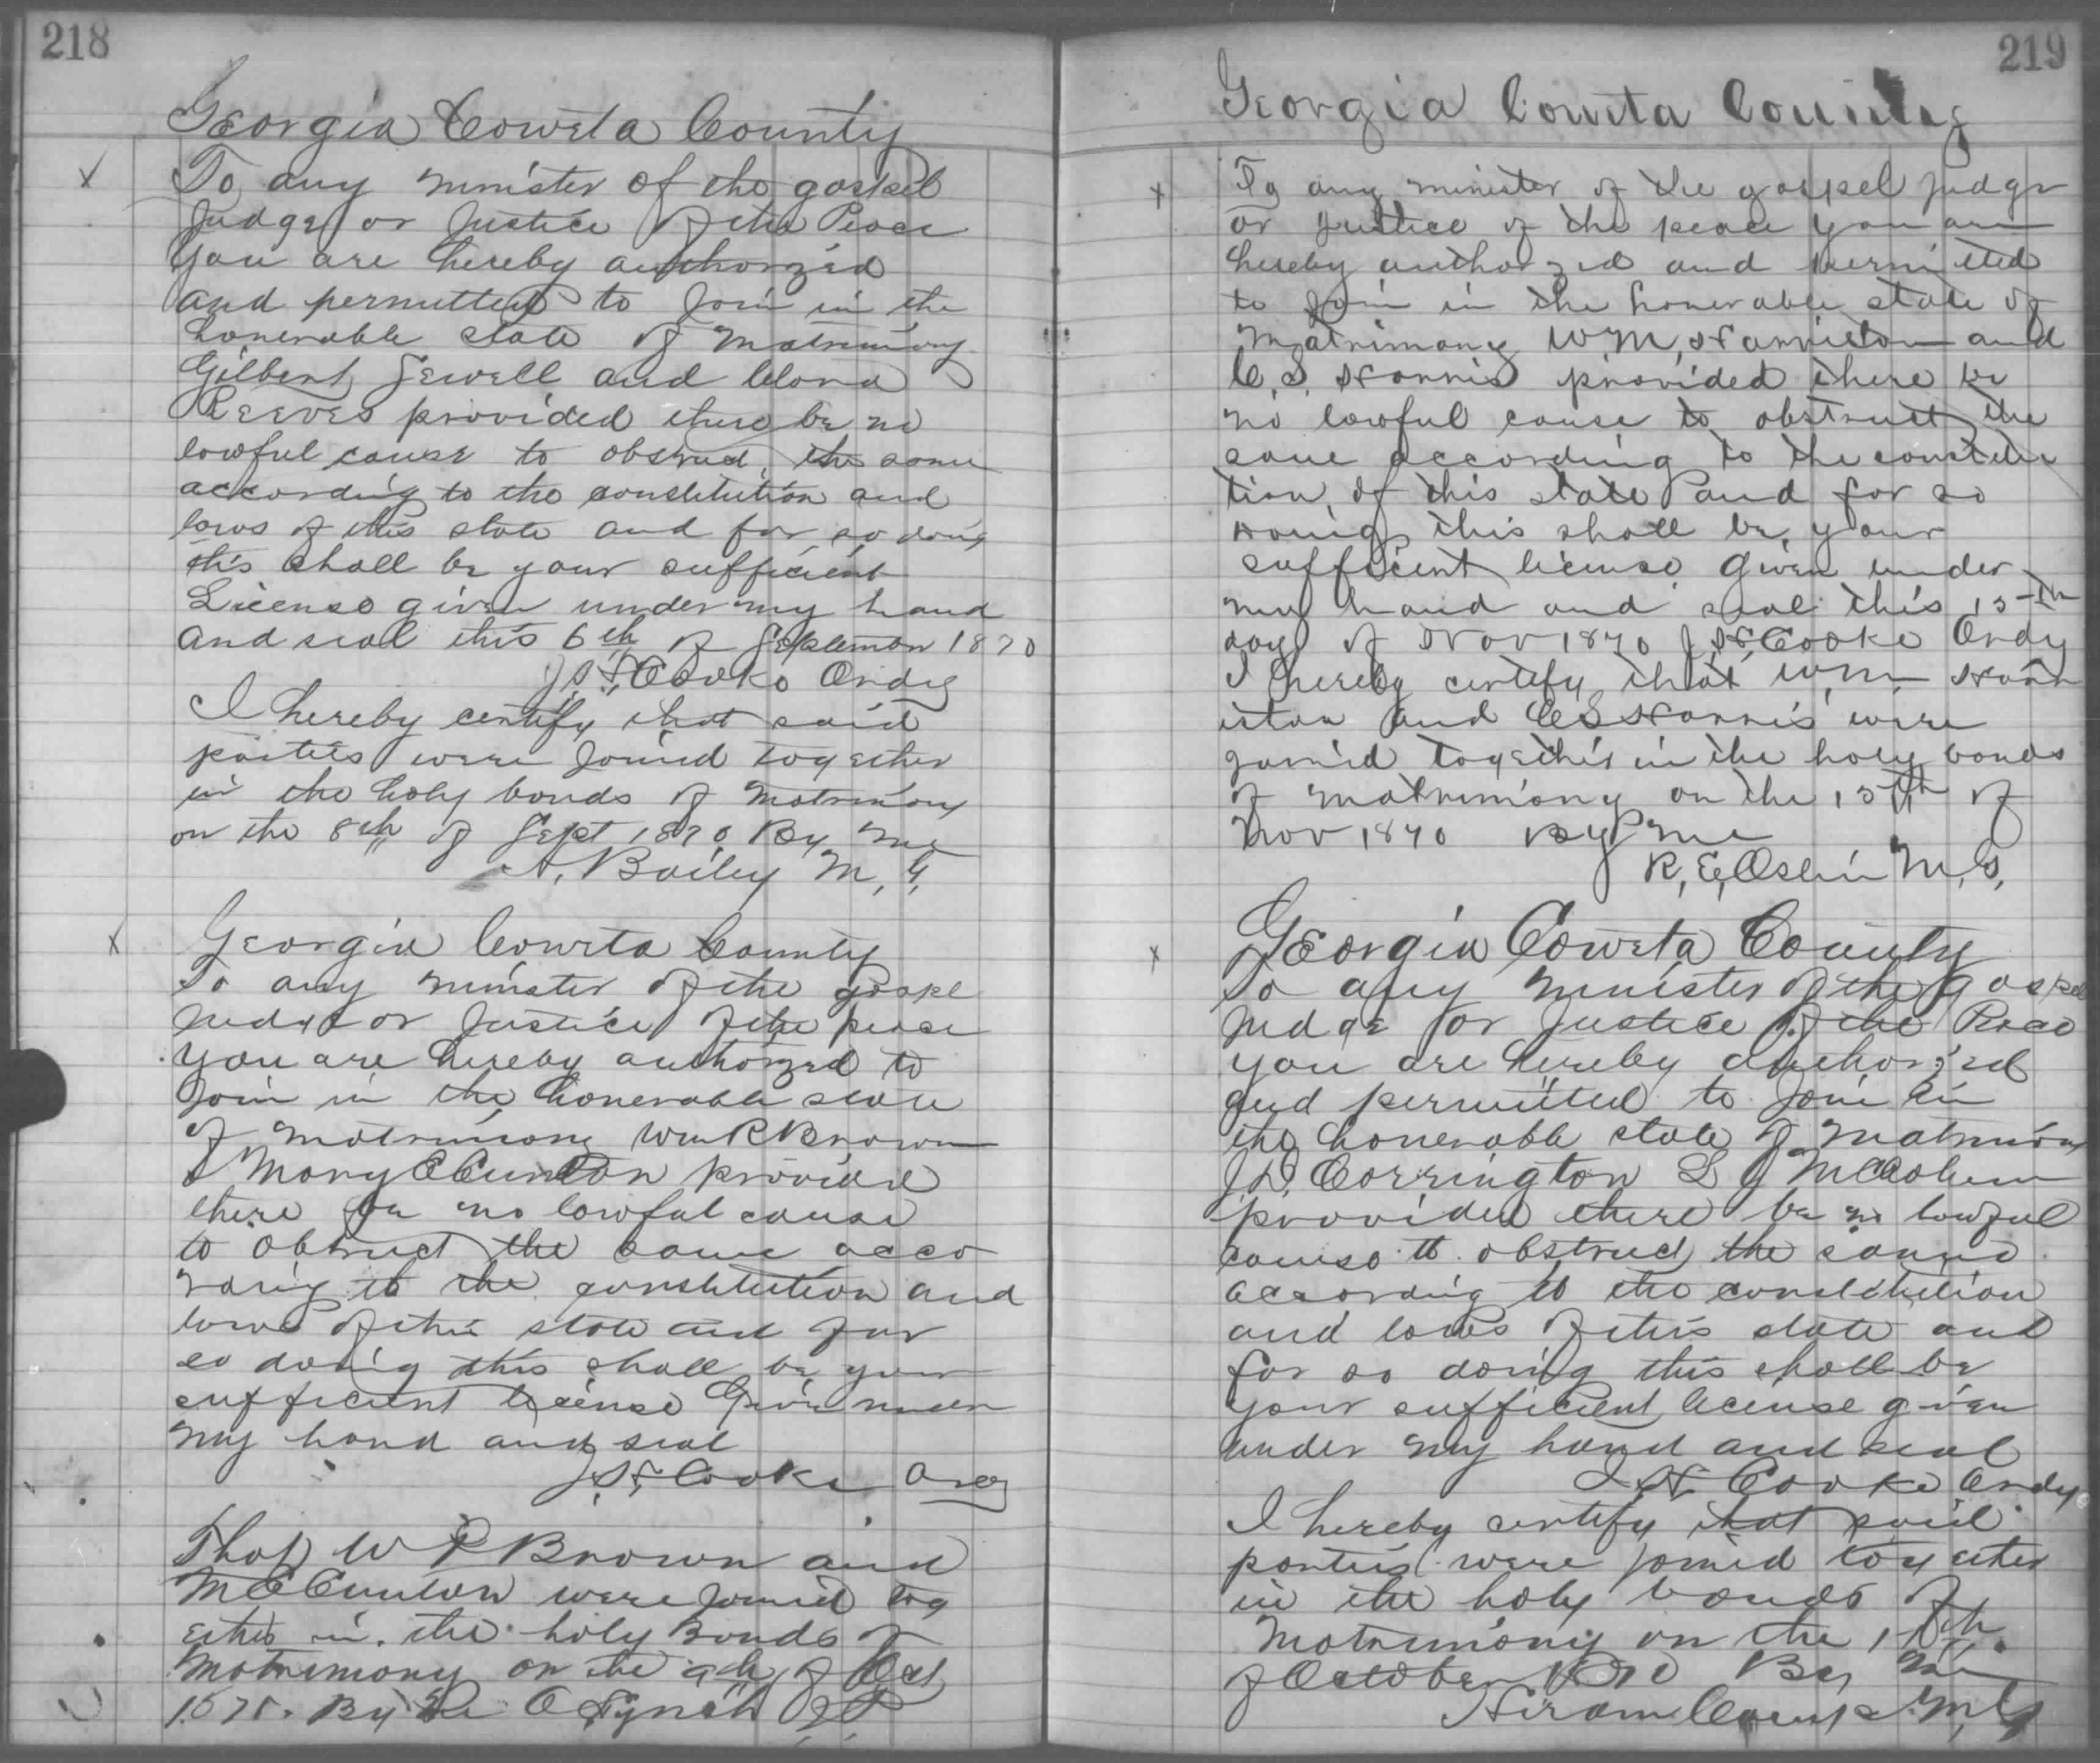 218
Georgia Coweta County
To any minister of the gospel
Judge or Justice of the Peace
You are hereby authorzed
and permitted to Join in the
honerable state of matrimony
Gilbert Sewell and Clora
Reeves provided there be no
lawful cause to obstruct the same
according to the constitution and
laws of this state and for so doing
this shall be your sufficient
License given under my hand
and seal this 6th of September 1870
J. H. Cooke Ordy
I hereby certify that said
parties were Joined together
in the holy bonds of matrimony
on the 8th of Sept 1870 By me
A. Bailey M, G,
Georgia Coweta County
To any minister of the gospel
Judge or Justice of the peace
you are hereby authorzed to
Join in the honerable state
of matrimony Wm R Brown
& Mary E provided
there be no lawful cause
to obstruct the same acco
rding to the constitution and
laws of this state and for
so doing this shall be your
sufficient license Given under
my hand and seal
J. H. Cooke Ordy
That W R Brown and
M E were Joined tog
ether in the holy Bonds of
Matrimony on the 9th of Oct
By me O Lynch J P
219
Georgia Coweta County
To any minister of the gospel Judge
or Justice of the peace you are
hereby authorzed and permitted
to Join in the honerable state of
Matrimony WM, Harriston and
C, S, Harris provided there be
no lawful cause to obstruct the
same according to the constitu
tion of this state and for so
doing this shall be your
sufficient license given under
my hand and seal this 15th
day of Nov 1870 J, H, Cooke Ordy
I hereby certify that Wm Harr
iston and C S Harris were
joined together in the holy bonds
of matrimony on the 15th of
Nov 1870 By me
R, E, Oslin M, G,
Georgia Coweta County
To any minister of the gospel
Judge or Justice of the Peace
you are hereby authorized
and permitted to Join in
the honerable state of matrimony
J. D. Carrington L J
provided there be no lawful
cause to obstruct the same
according to the constitution
and laws of this state and
for so doing this shall be
your sufficient license given
under my hand and seal
J H Cooke Ordy
I hereby certify that said
parties were joined together
in the holy bonds of
Matrimony on the
of October 1870 By me
Hiram Camp M G